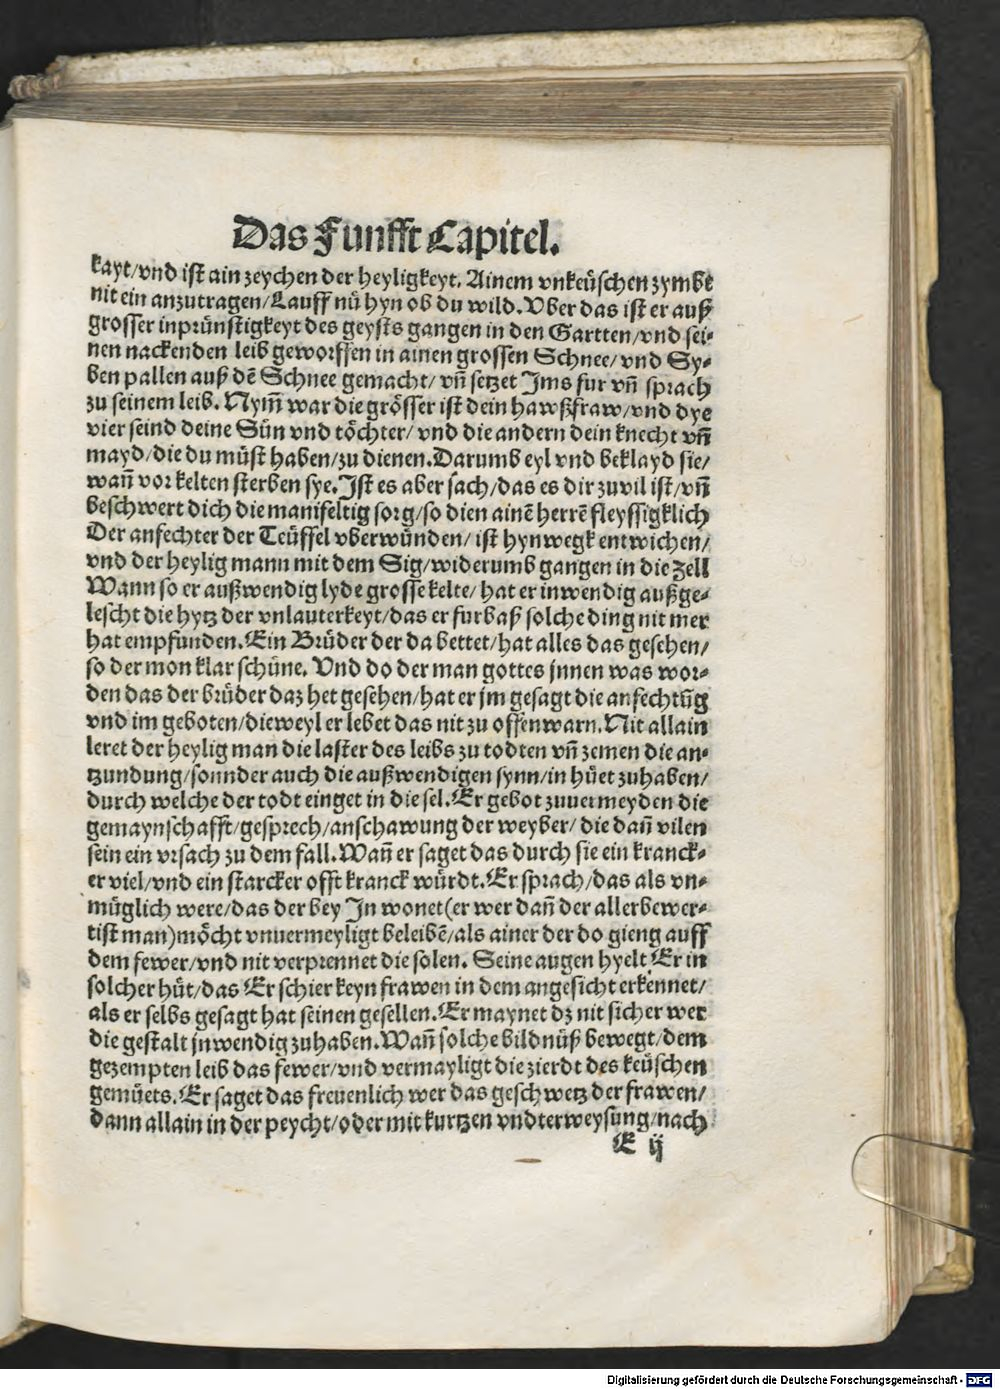 Das Funfft Capitel.
kayt/vnd ist ain zeychen der heyligkeyt. Ainem vnkeüschen zymbt
nit ein anzutragen/Lauff nū hyn ob du wild. Vber das ist er auß
grosser inprünstigkeyt des geysts gangen in den Gartten/vnd sei-
nen nackenden leib geworffen in ainen grossen Schnee/vnd Sy-
ben pallen auß dē Schnee gemacht/vn̄ setzet Jms fur vn̄ sprach
zu seinem leib. Nym̄ war die grösser ist dein hawßfraw/vnd dye
vier seind deine Sün vnd töchter/vnd die andern dein knecht vn̄
mayd/die du müst haben/zu dienen. Darumb eyl vnd beklayd sie/
wan̄ vor kelten sterben sye. Jst es aber sach/das es dir zuvil ist/vn̄
beschwert dich die manifeltig sorg/so dien ainē herrē fleyssigklich
Der anfechter der Teüffel vberwunden/ist hynwegk entwichen/
vnd der heylig mann mit dem Sig/widerumb gangen in die Zell
Wann so er außwendig lyde grosse kelte/hat er inwendig außge-
lescht die hytz der vnlauterkeyt/das er furbaß solche ding nit mer
hat empfunden. Ein Brüder der da bettet/hat alles das gesehen/
so der mon klar schüne. Vnd do der man gottes jnnen was wor-
den das der brüder daz het gesehen/hat er jm gesagt die anfechtūg
vnd im geboten/dieweyl er lebet das nit zu offenwarn. Nit allain
leret der heylig man die laster des leibs zu todten vn̄ zemen die an-
tzundung/sonnder auch die außwendigen synn/in hüet zuhaben/
durch welche der todt einget in die sel. Er gebot zuuermeyden die
gemaynschafft/gesprech/anschawung der weyber/die dan̄ vilen
sein ein vrsach zu dem fall. Wan̄ er saget das durch sie ein kranck-
er viel/vnd ein starcker offt kranck würdt. Er sprach/das als vn-
müglich were/das der bey Jn wonet(er wer dan̄ der allerbewer-
tist man)möcht vnuermeyligt beleibē/als ainer der do gieng auff
dem fewer/vnd nit verprennet die solen. Seine augen hyelt Er in
solcher hüt/das Er schier keyn frawen in dem angesicht erkennet/
als er selbs gesagt hat seinen gesellen. Er maynet dz nit sicher wer
die gestalt jnwendig zuhaben. Wan̄ solche bildnüß bewegt/dem
gezempten leib das fewer/vnd vermayligt die zierdt des keüschen
gemüets. Er saget das freuenlich wer das geschwetz der frawen/
dann allain in der peycht/oder mit kurtzen vndterweysung/nach
E ij
Digitalisierung gefördert durch die Deutsche Forschungsgemeinschaft - DFG